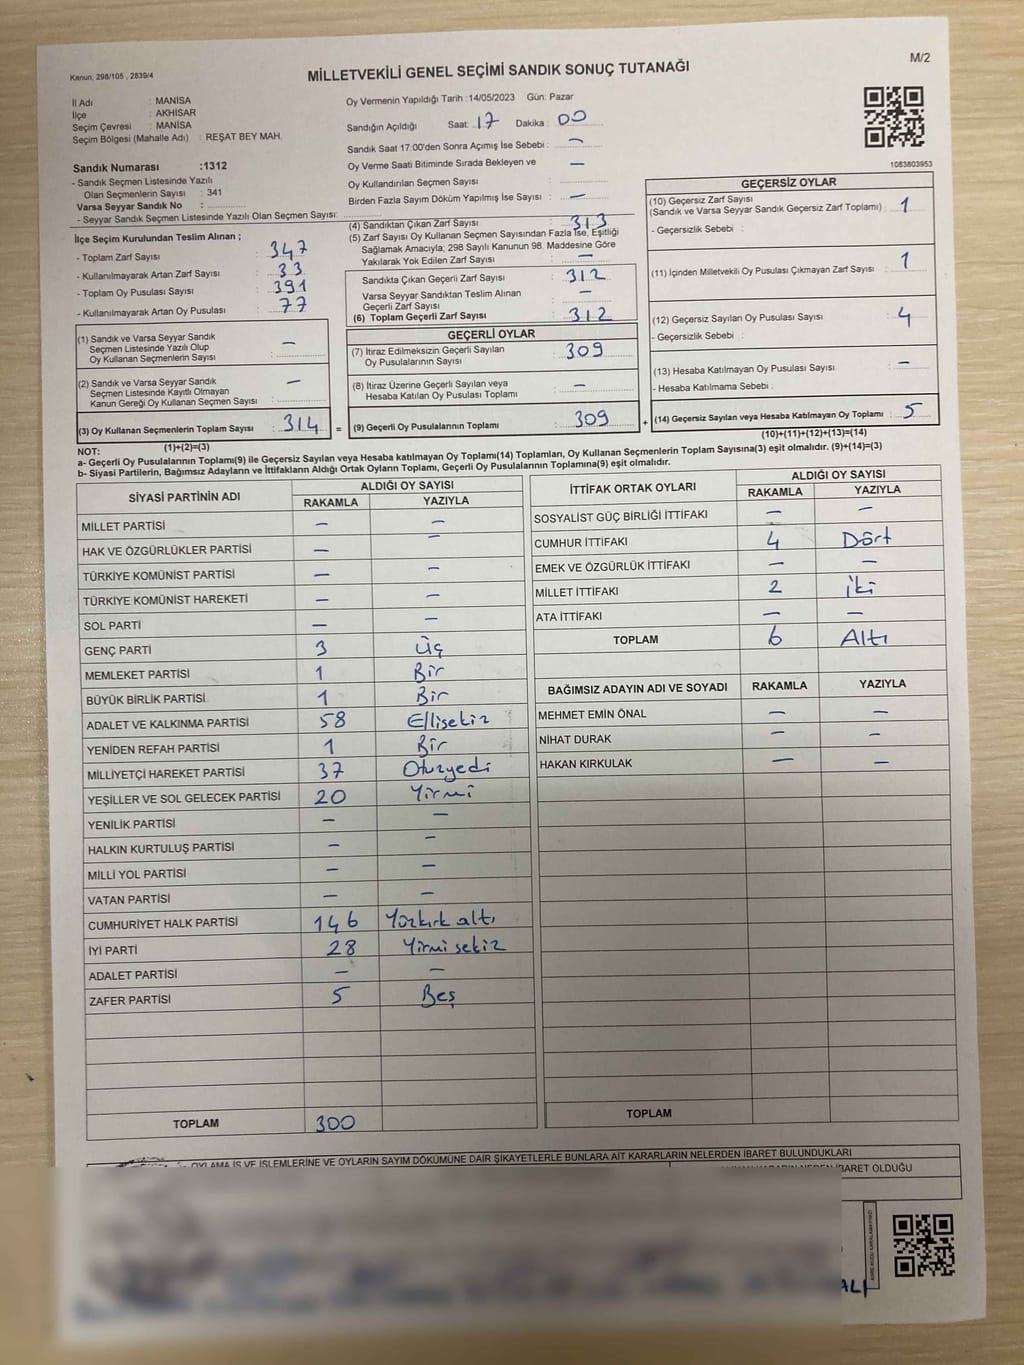 Kanun: 298/105 , 2839/4
MİLLETVEKİLİ GENEL SEÇİMİ SANDIK SONUÇ TUTANAĞI
M/2
İl Adı : MANİSA
İlçe : AKHİSAR
Seçim Çevresi : MANİSA
Seçim Bölgesi (Mahalle Adı) : REŞAT BEY MAH.
Sandık Numarası :1312
- Sandık Seçmen Listesinde Yazılı
Olan Seçmenlerin Sayısı : 341
Varsa Seyyar Sandık No :
- Seyyar Sandık Seçmen Listesinde Yazılı Olan Seçmen Sayısı:
Oy Vermenin Yapıldığı Tarih :14/05/2023 Gün: Pazar
Sandığın Açıldığı Saat: 17 Dakika : 00
Sandık Saat 17:00'den Sonra Açımış İse Sebebi : —
Oy Verme Saati Bitiminde Sırada Bekleyen ve —
Oy Kullandırılan Seçmen Sayısı
Birden Fazla Sayım Döküm Yapılmış İse Sayısı : —
1083803953
İlçe Seçim Kurulundan Teslim Alınan ;
- Toplam Zarf Sayısı : 347
- Kullanılmayarak Artan Zarf Sayısı : 33
- Toplam Oy Pusulası Sayısı : 391
- Kullanılmayarak Artan Oy Pusulası : 77
(1) Sandık ve Varsa Seyyar Sandık
Seçmen Listesinde Yazılı Olup
Oy Kullanan Seçmenlerin Sayısı : —
(2) Sandık ve Varsa Seyyar Sandık
Seçmen Listesinde Kayıtlı Olmayan
Kanun Gereği Oy Kullanan Seçmen Sayısı : —
(3) Oy Kullanan Seçmenlerin Toplam Sayısı : 314 =
(1)+(2)=(3)
(4) Sandıktan Çıkan Zarf Sayısı : 313
(5) Zarf Sayısı Oy Kullanan Seçmen Sayısından Fazla İse, Eşitliği
Sağlamak Amacıyla; 298 Sayılı Kanunun 98. Maddesine Göre
Yakılarak Yok Edilen Zarf Sayısı : —
Sandıkta Çıkan Geçerli Zarf Sayısı : 312
Varsa Seyyar Sandıktan Teslim Alınan
Geçerli Zarf Sayısı : —
(6) Toplam Geçerli Zarf Sayısı : 312
GEÇERLİ OYLAR
(7) İtiraz Edilmeksizin Geçerli Sayılan
Oy Pusulalarının Sayısı : 309
(8) İtiraz Üzerine Geçerli Sayılan veya
Hesaba Katılan Oy Pusulası Toplamı : —
(9) Geçerli Oy Pusulalarının Toplamı : 309 +
GEÇERSİZ OYLAR
(10) Geçersiz Zarf Sayısı
(Sandık ve Varsa Seyyar Sandık Geçersiz Zarf Toplamı) : 1
- Geçersizlik Sebebi :
(11) İçinden Milletvekili Oy Pusulası Çıkmayan Zarf Sayısı : 1
(12) Geçersiz Sayılan Oy Pusulası Sayısı : 4
- Geçersizlik Sebebi :
(13) Hesaba Katılmayan Oy Pusulası Sayısı : —
- Hesaba Katılmama Sebebi :
(14) Geçersiz Sayılan veya Hesaba Katılmayan Oy Toplamı : 5
(10)+(11)+(12)+(13)=(14)
NOT:
a- Geçerli Oy Pusulalarının Toplamı(9) ile Geçersiz Sayılan veya Hesaba katılmayan Oy Toplamı(14) Toplamları, Oy Kullanan Seçmenlerin Toplam Sayısına(3) eşit olmalıdır. (9)+(14)=(3)
b- Siyasi Partilerin, Bağımsız Adayların ve İttifakların Aldığı Ortak Oyların Toplamı, Geçerli Oy Pusulalarının Toplamına(9) eşit olmalıdır.
SİYASİ PARTİNİN ADI ALDIĞI OY SAYISI
RAKAMLA YAZIYLA
MİLLET PARTİSİ — —
HAK VE ÖZGÜRLÜKLER PARTİSİ — —
TÜRKİYE KOMÜNİST PARTİSİ — —
TÜRKİYE KOMÜNİST HAREKETİ — —
SOL PARTİ — —
GENÇ PARTİ 3 Üç
MEMLEKET PARTİSİ 1 Bir
BÜYÜK BİRLİK PARTİSİ 1 Bir
ADALET VE KALKINMA PARTİSİ 58 Ellisekiz
YENİDEN REFAH PARTİSİ 1 Bir
MİLLİYETÇİ HAREKET PARTİSİ 37 Otuzyedi
YEŞİLLER VE SOL GELECEK PARTİSİ 20 Yirmi
YENİLİK PARTİSİ — —
HALKIN KURTULUŞ PARTİSİ — —
MİLLİ YOL PARTİSİ — —
VATAN PARTİSİ — —
CUMHURİYET HALK PARTİSİ 146 Yüzkırk altı
İYİ PARTİ 28 Yirmi sekiz
ADALET PARTİSİ — —
ZAFER PARTİSİ 5 Beş
TOPLAM 300
İTTİFAK ORTAK OYLARI ALDIĞI OY SAYISI
RAKAMLA YAZIYLA
SOSYALİST GÜÇ BİRLİĞİ İTTİFAKI — —
CUMHUR İTTİFAKI 4 Dört
EMEK VE ÖZGÜRLÜK İTTİFAKI — —
MİLLET İTTİFAKI 2 İki
ATA İTTİFAKI — —
TOPLAM 6 Altı
BAĞIMSIZ ADAYIN ADI VE SOYADI RAKAMLA YAZIYLA
MEHMET EMİN ÖNAL — —
NİHAT DURAK — —
HAKAN KIRKULAK — —
TOPLAM
OYLAMA İŞ VE İŞLEMLERİNE VE OYLARIN SAYIM DÖKÜMÜNE DAİR ŞİKAYETLERLE BUNLARA AİT KARARLARIN NELERDEN İBARET BULUNDUKLARI
İBARET OLDUĞU